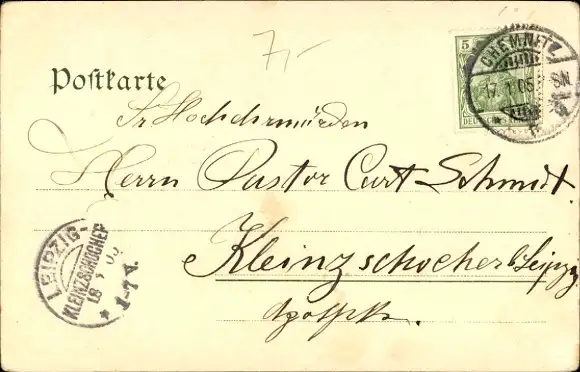 7,-
5
DEUTSCHES
CHEMNITZ
17.1.05
Postkarte
Sr Hochehrwürden
Herrn Pastor Curt Schmidt.
Kleinzschocher b. Leipzig
LEIPZIG-
KLEINZSCHOCHER
18 1 05
1-7 V.